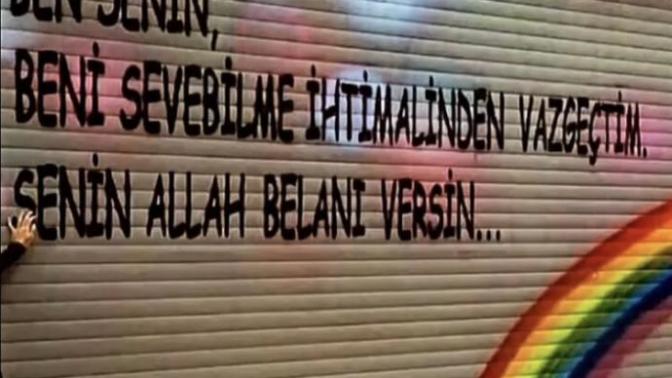 BEN SENİN,
BENİ SEVEBİLME İHTİMALİNDEN VAZGEÇTİM.
SENİN ALLAH BELANI VERSİN...